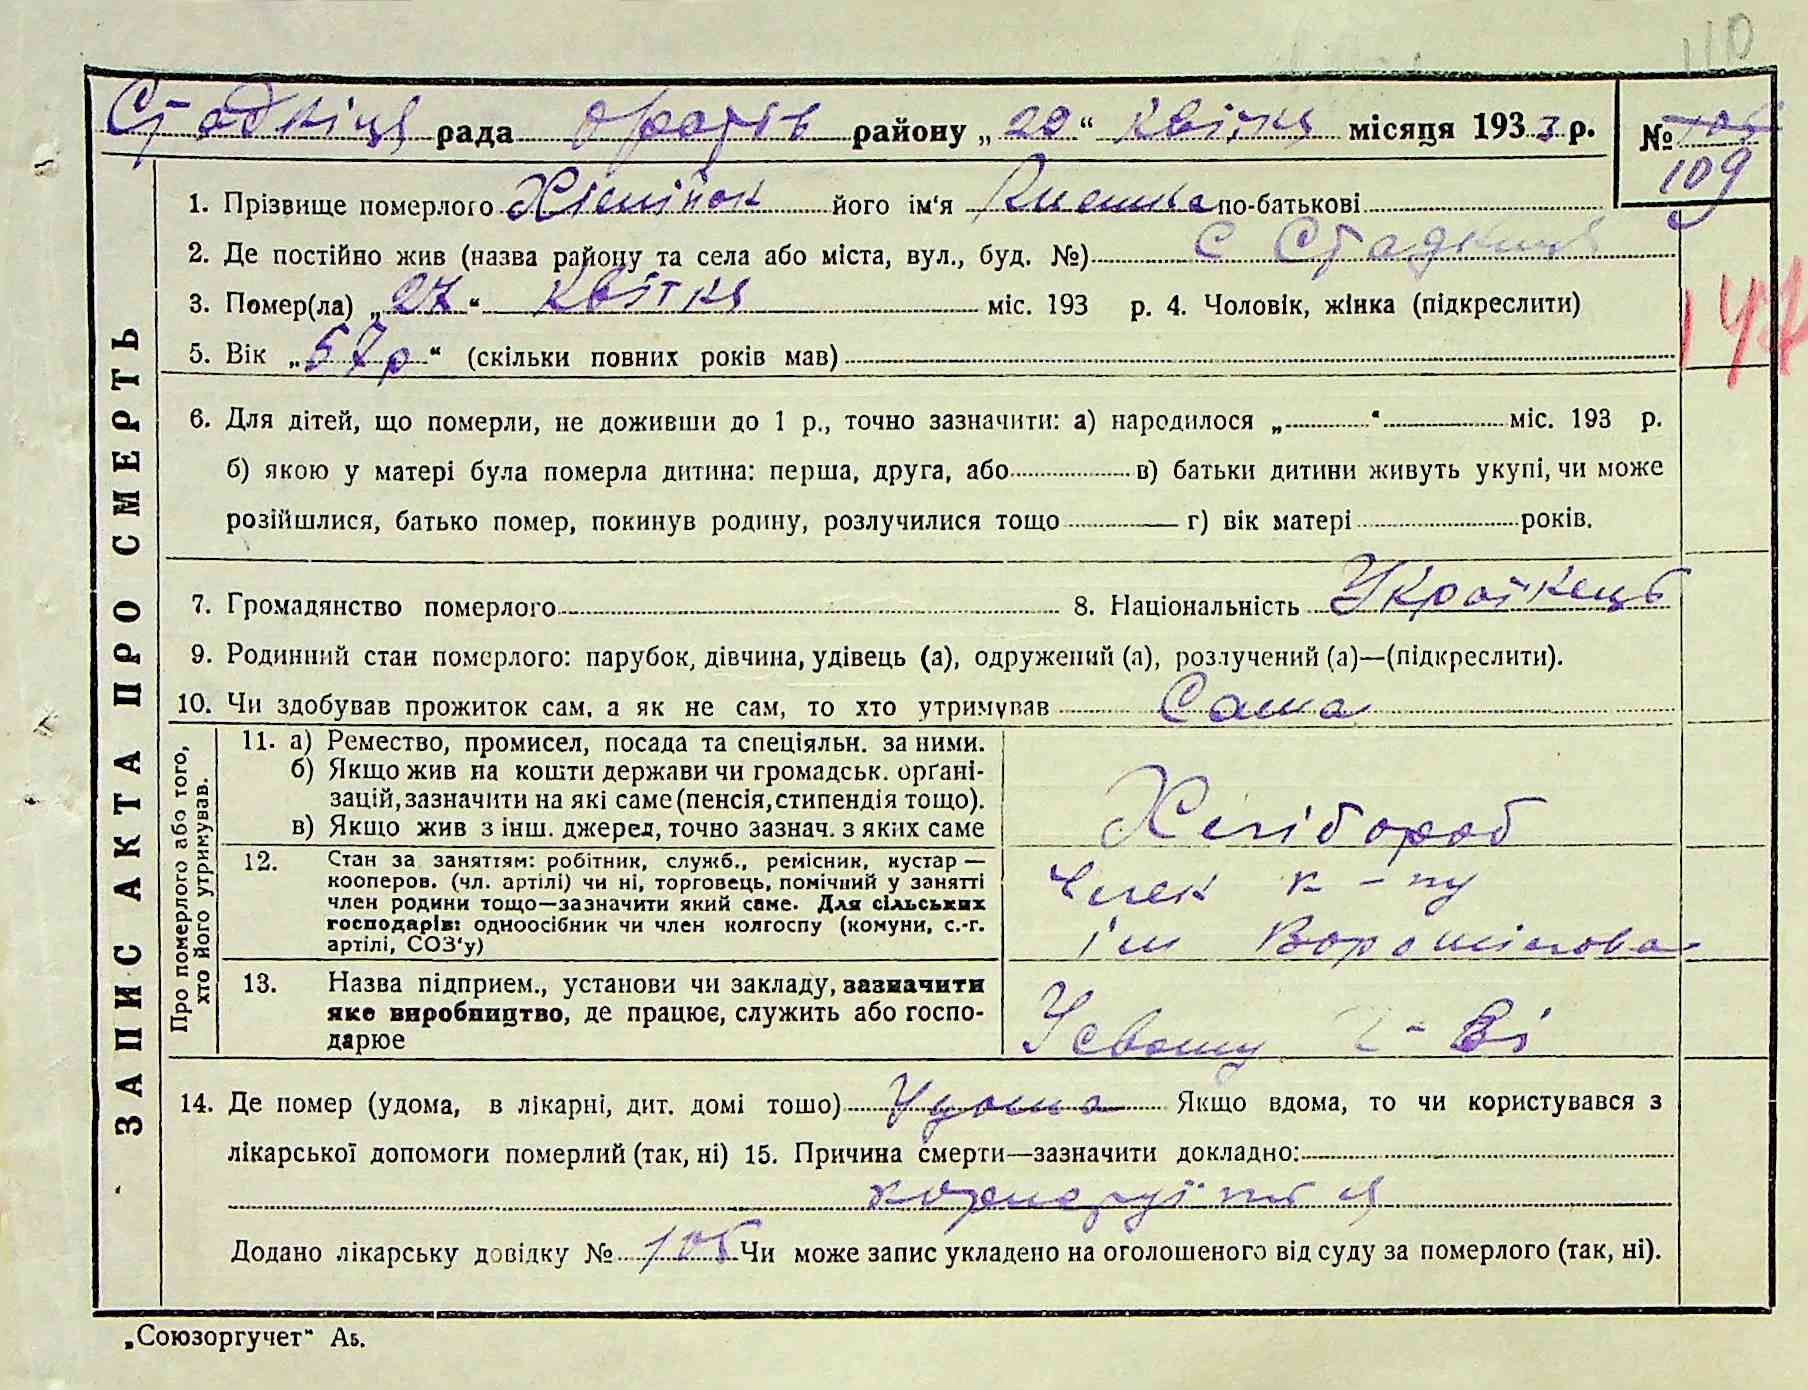 110
Стадниця рада Оратів району „ 29 “ квітня місяця 1933 р. № 105
109
1. Прізвище померлого його ім'я по-батькові
2. Де постійно жив (назва району та села або міста, вул., буд. №) с Стадниця
3. Помер(ла) „ 27 “ квітня міс. 193 р. 4. Чоловік, жінка (підкреслити)
147
5. Вік „ 57 р “ (скільки повних років мав)
6. Для дітей, що померли, не доживши до 1 р., точно зазначити: а) народилося „ “ міс. 193 р.
б) якою у матері була померла дитина: перша, друга, або в) батьки дитини живуть укупі, чи може
розійшлися, батько помер, покинув родину, розлучилися тощо г) вік матері років.
7. Громадянство померлого 8. Національність Українець
9. Родинний стан померлого: парубок, дівчина, удівець (а), одружений (а), розлучений (а)—(підкреслити).
10. Чи здобував прожиток сам, а як не сам, то хто утримував Сама
ЗАПИС АКТА ПРО СМЕРТЬ
Про померлого або того,
хто його утримував.
11. а) Ремество, промисел, посада та спеціяльн. за ними.
б) Якщо жив на кошти держави чи громадськ. орґані-
зацій, зазначити на які саме (пенсія, стипендія тощо).
в) Якщо жив з інш. джерел, точно зазнач. з яких саме
Хлібороб
12. Стан за заняттям: робітник, служб., ремісник, кустар —
кооперов. (чл. артілі) чи ні, торговець, помічний у занятті
член родини тощо—зазначити який саме. Для сільських
господарів: одноосібник чи член колгоспу (комуни, с.-г.
артілі, СОЗ'у)
Член к-пу
ім Ворошилова
13. Назва підприєм., установи чи закладу, зазначити
яке виробництво, де працює, служить або госпо-
дарює
У свому г-ві
14. Де помер (удома, в лікарні, дит. домі тощо) Удома Якщо вдома, то чи користувався з
лікарської допомоги померлий (так, ні) 15. Причина смерти—зазначити докладно:
Додано лікарську довідку № 105 Чи може запис укладено на оголошеного від суду за померлого (так, ні).
„Союзоргучет“ Аѣ.